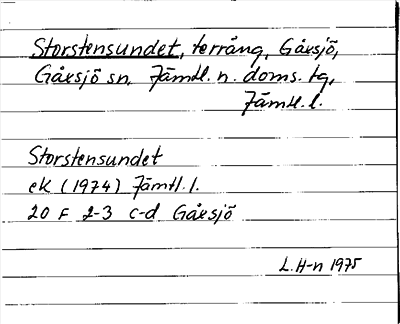 Storstensundet, terräng, Gåxsjö,
Gåxsjö sn. Jämtl. n. doms. tg,
Jämtl. l.
Storstensundet
ek (1974) Jämtl. l.
20 F 2-3 c-d Gåxsjö
L. H-n 1975